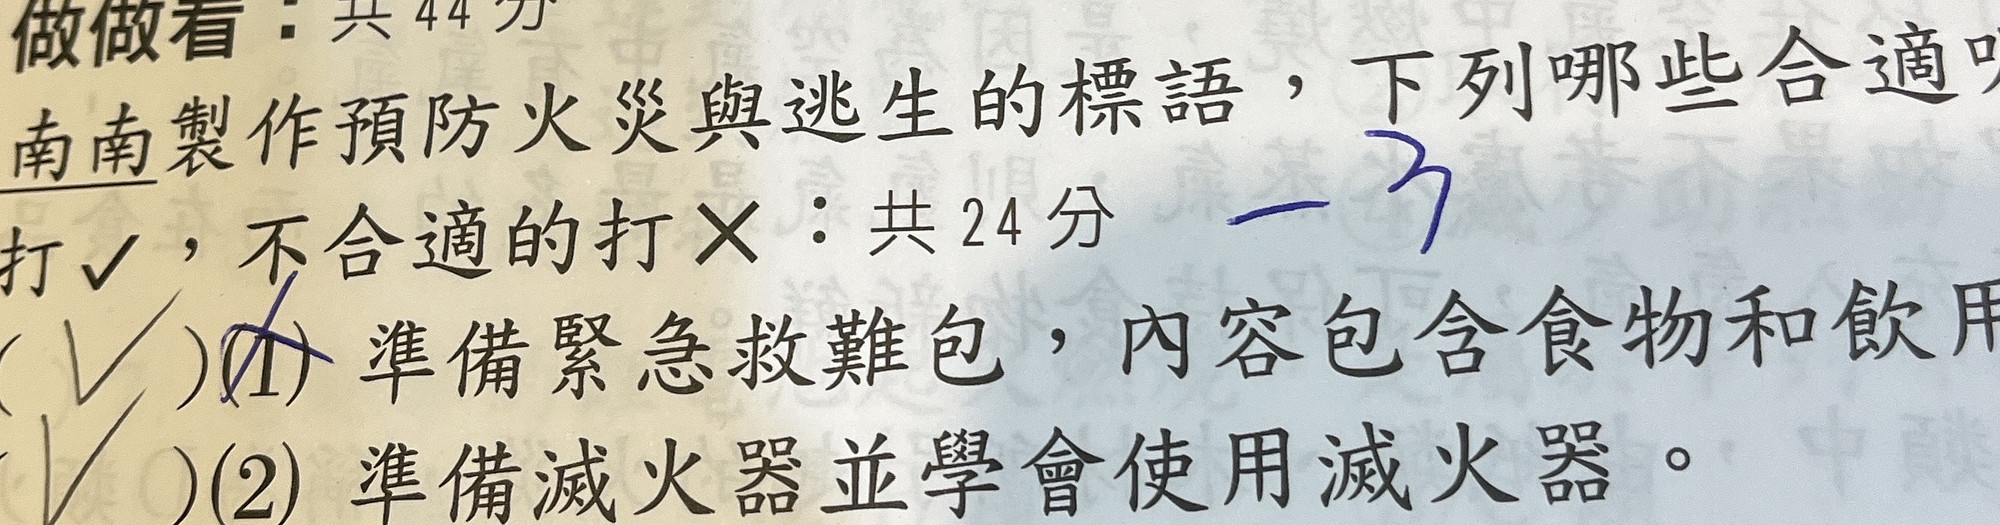 做做看：共44分
南南製作預防火災與逃生的標語，下列哪些合適
打✓，不合適的打✕：共24分 -3
(✓)(1) 準備緊急救難包，內容包含食物和飲用
(✓)(2) 準備滅火器並學會使用滅火器。